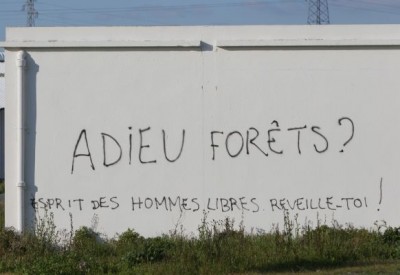 ADiEU FORÊTS?
ESPRIT DES HOMMES LIBRES REVEILLE-TOI!